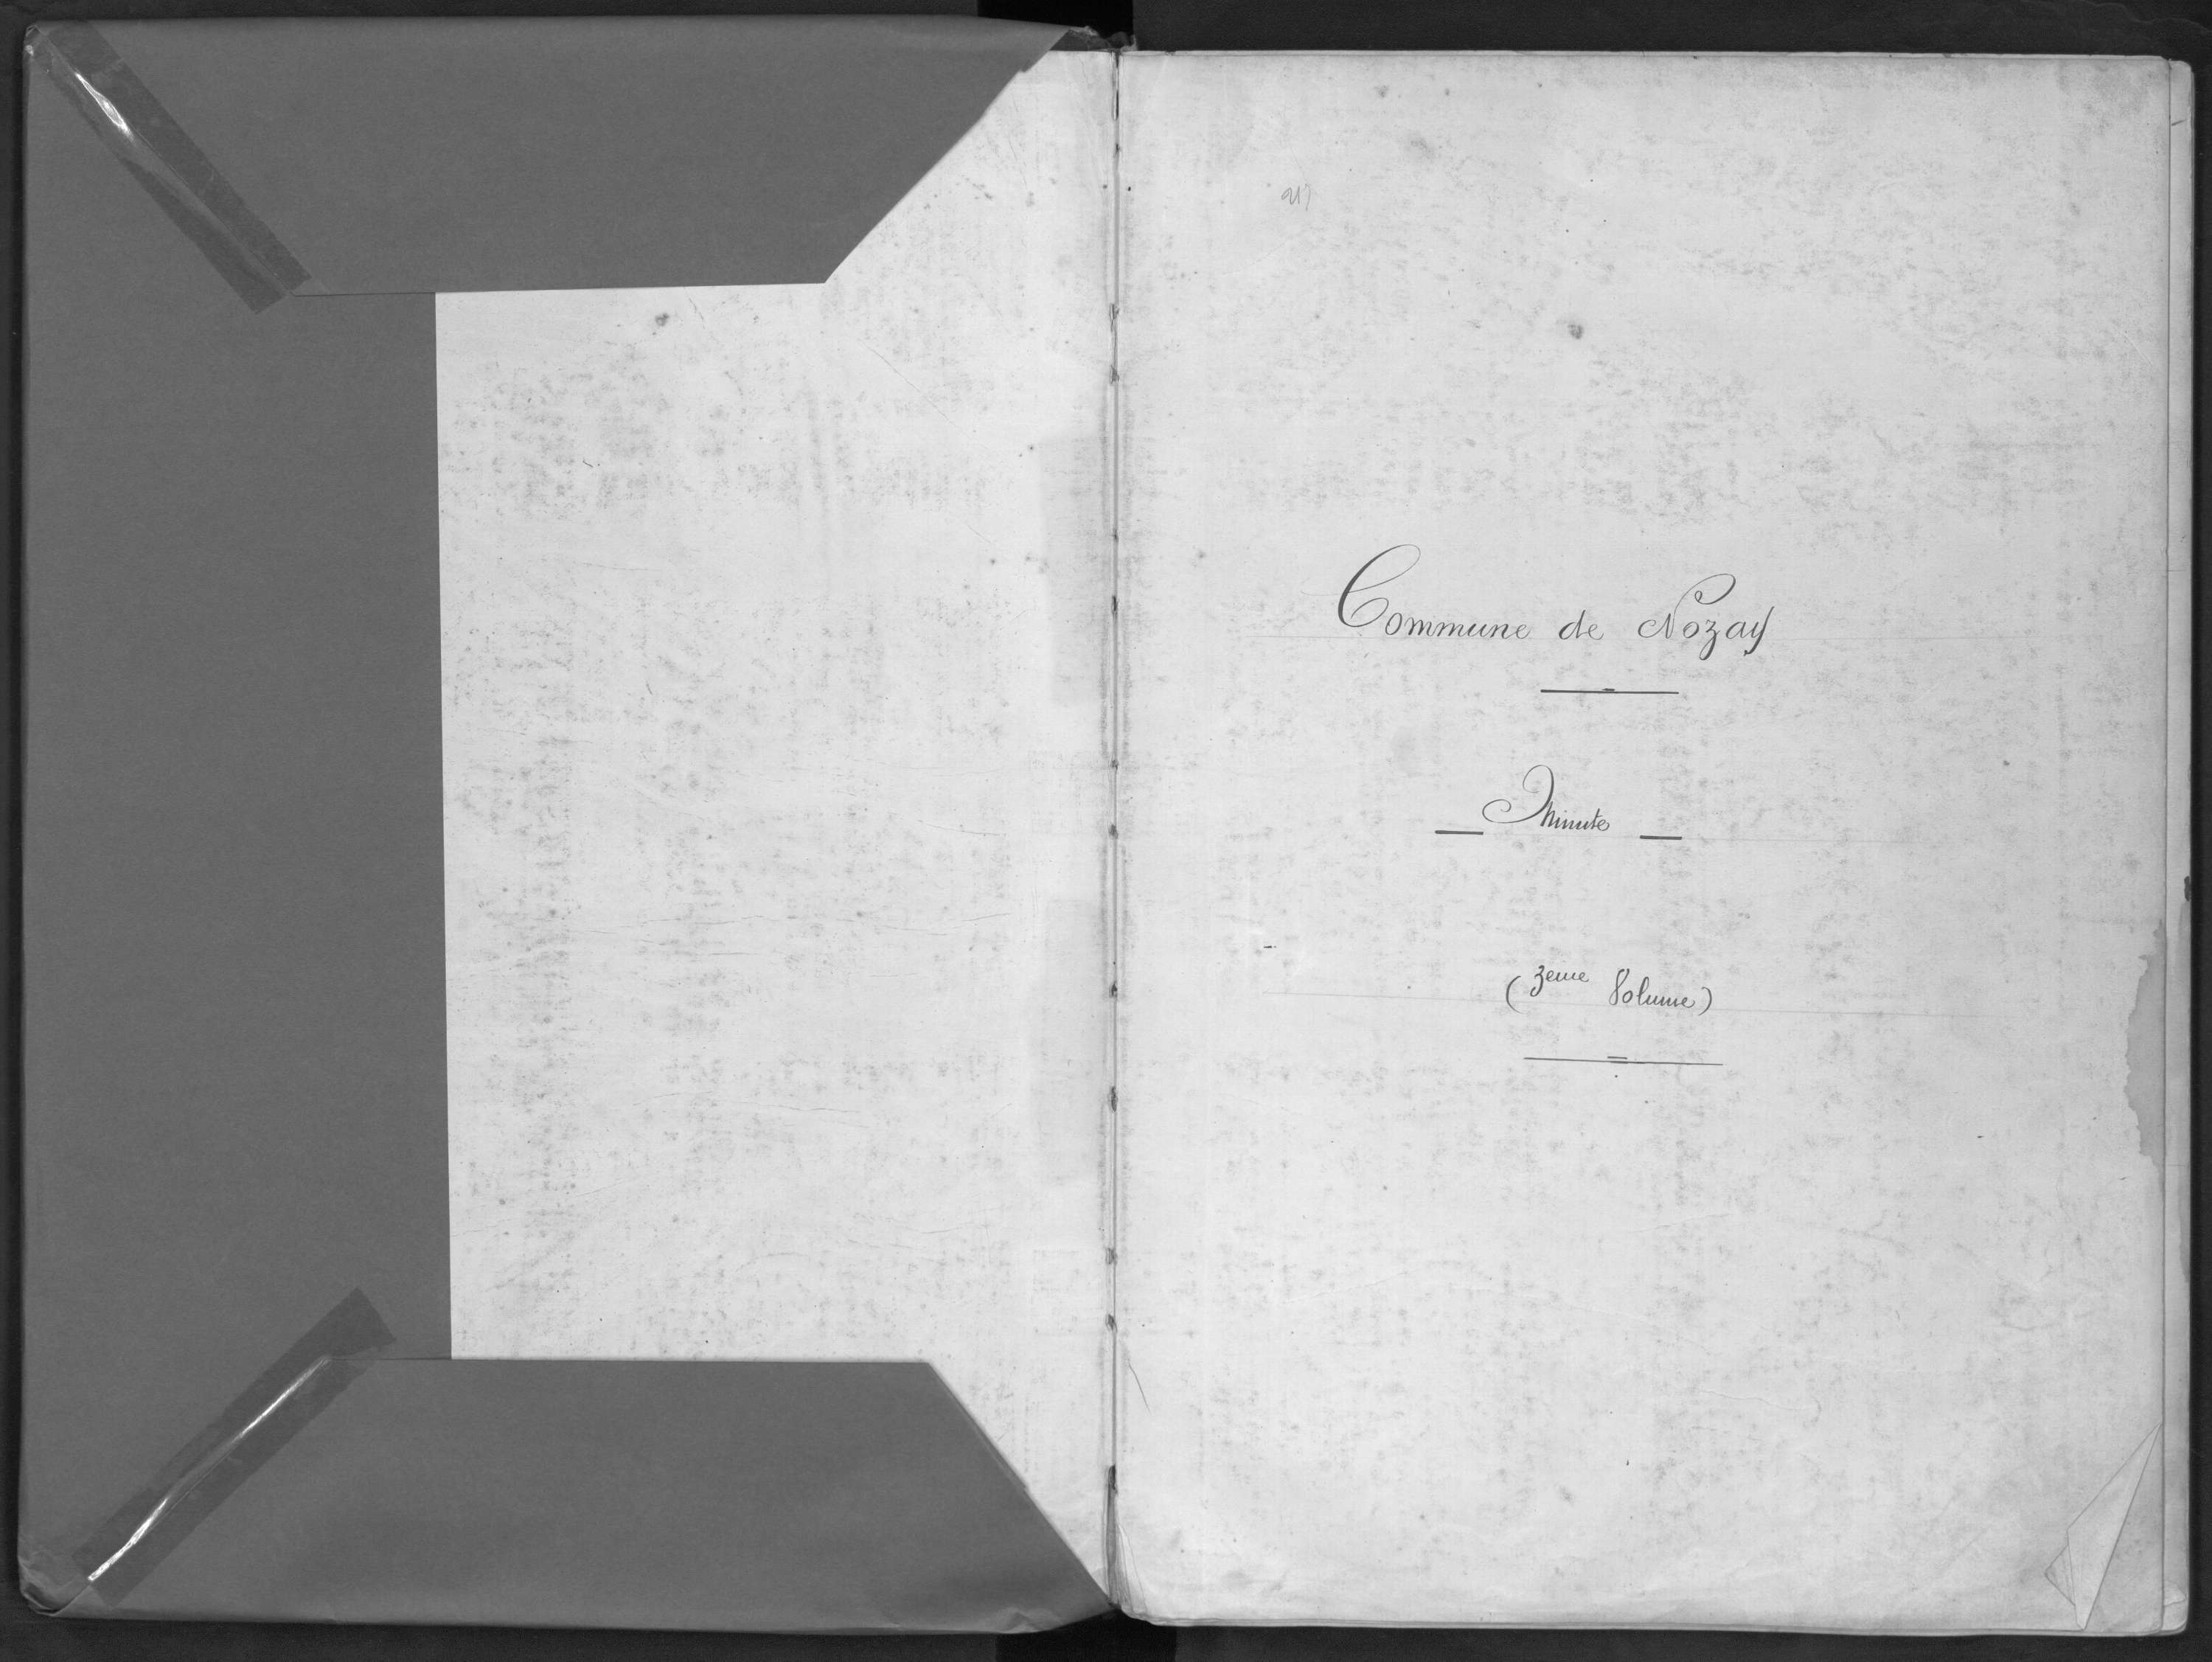 Commune de Nozay
Minute
(3eme Volume)